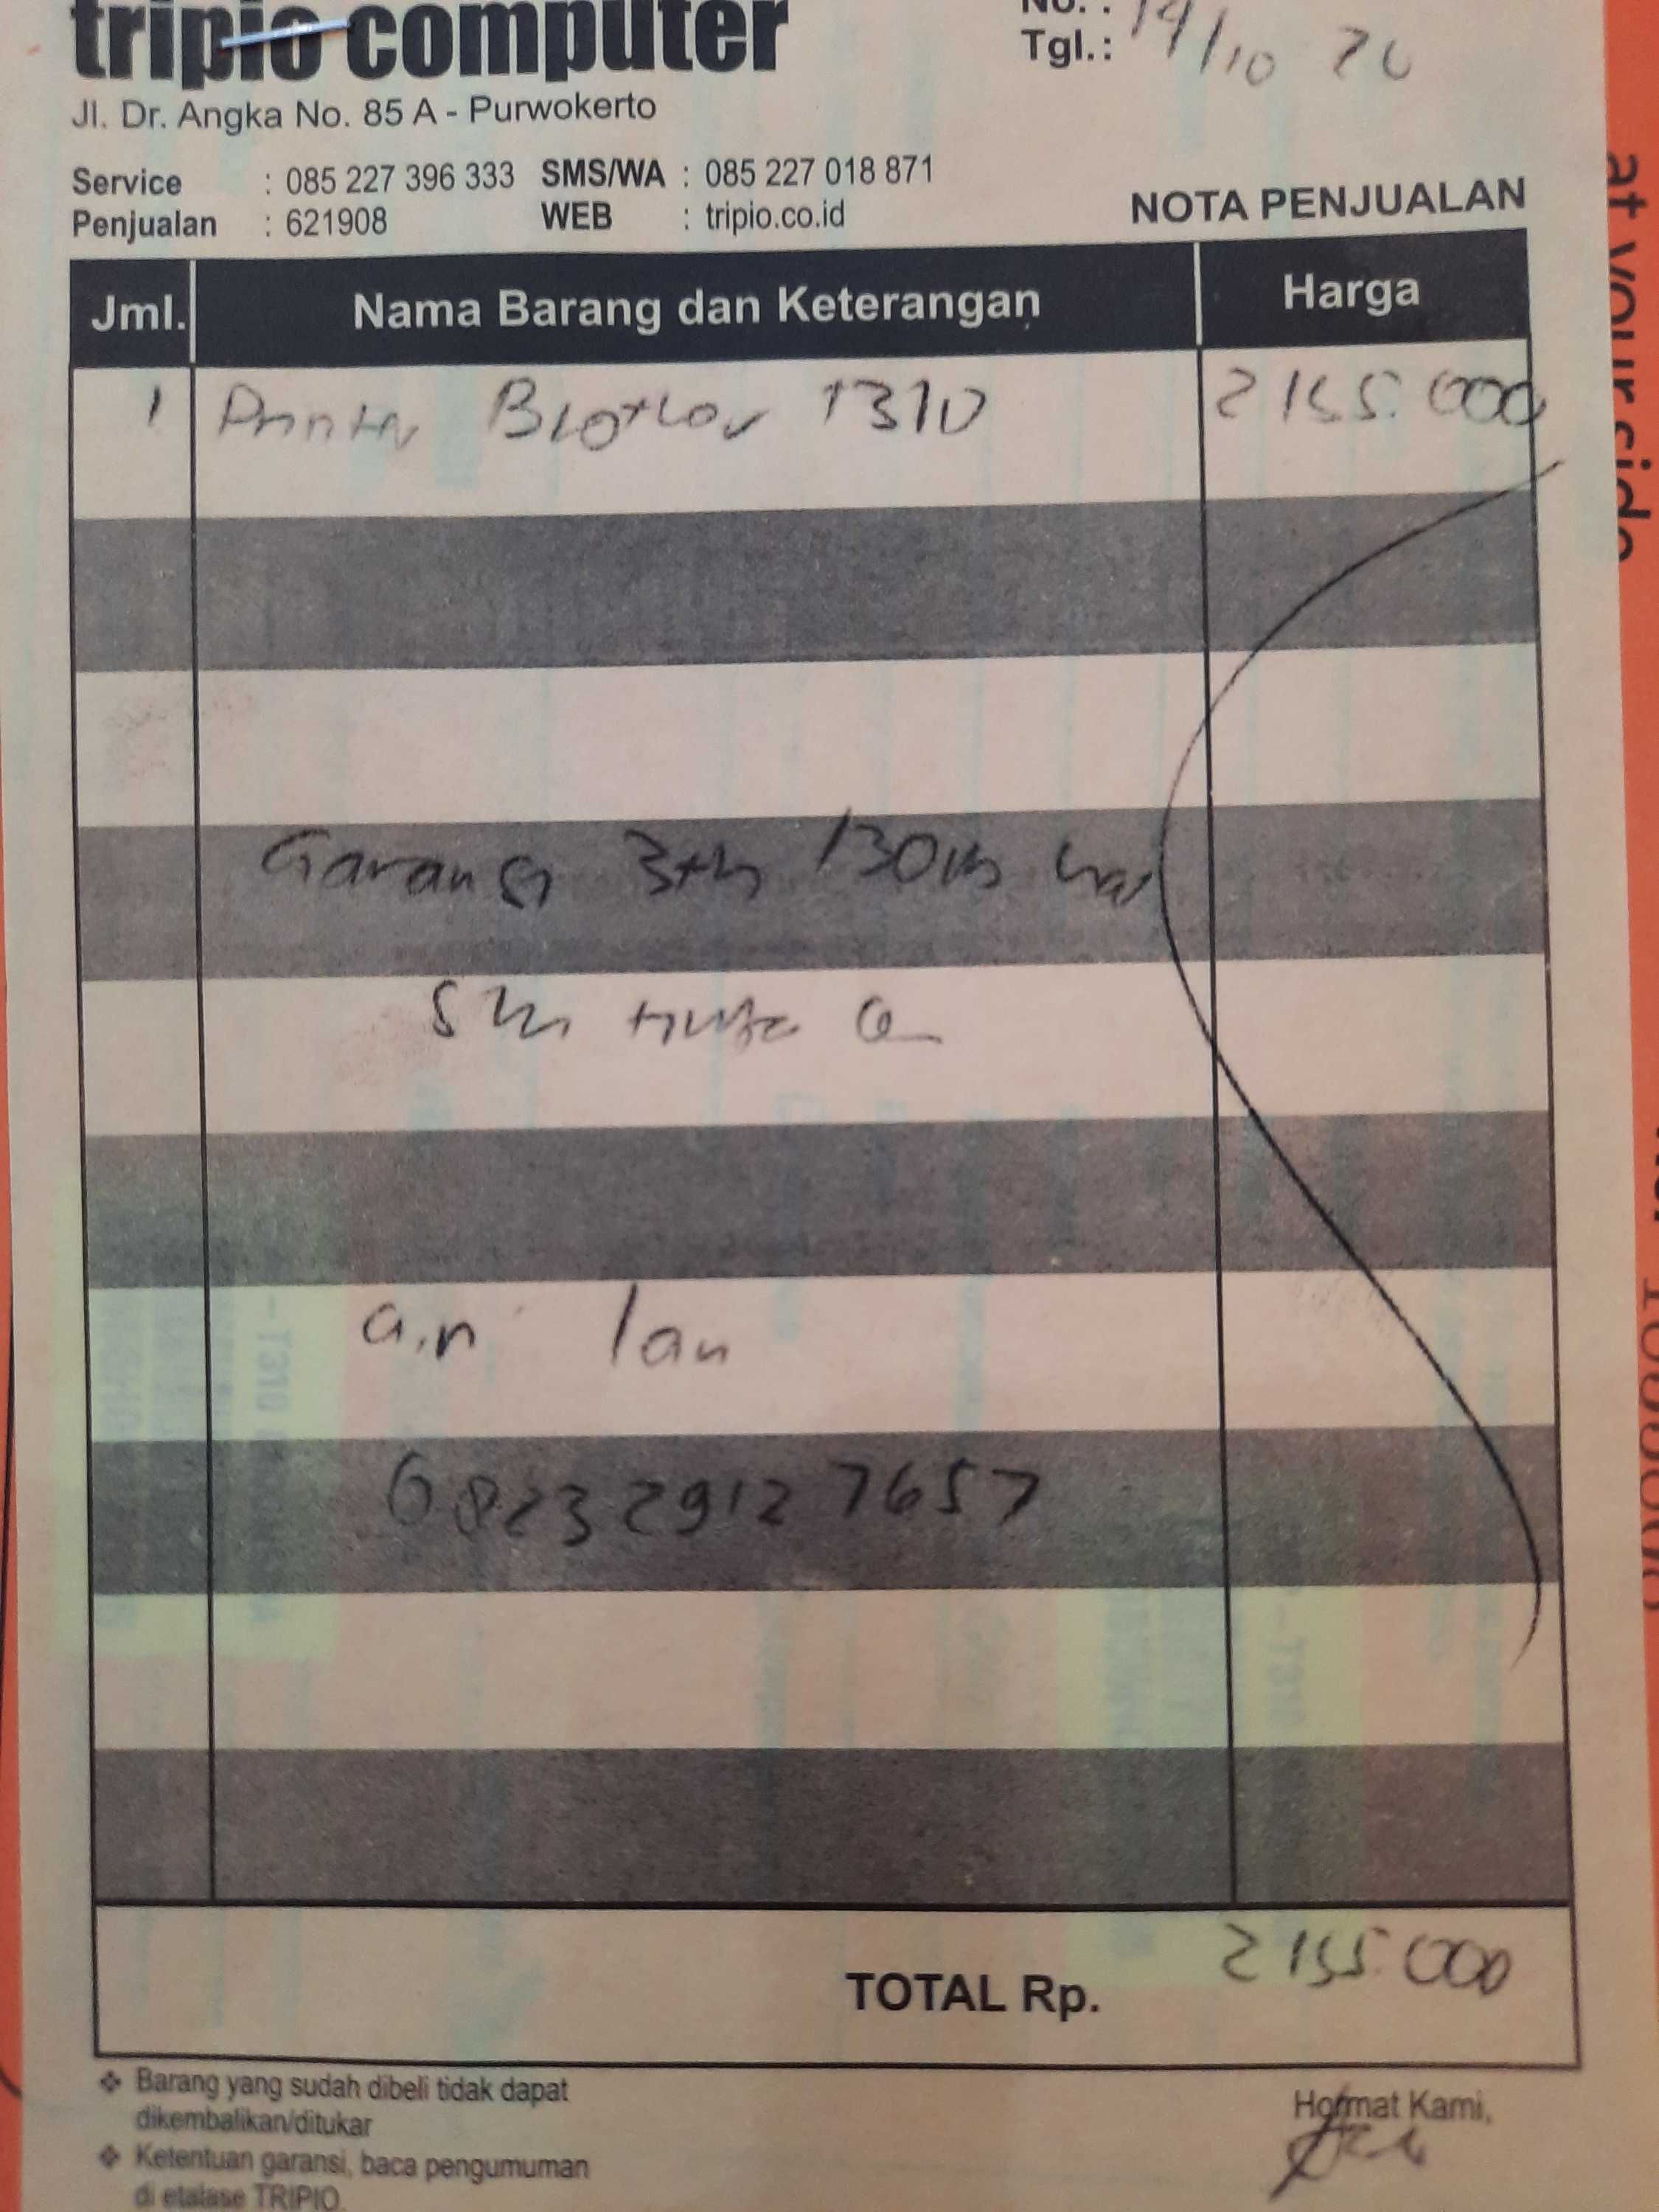 tripio computer
No. :
Tgl.: 14/10 20
Jl. Dr. Angka No. 85 A - Purwokerto
Service : 085 227 396 333 SMS/WA : 085 227 018 871
Penjualan : 621908 WEB : tripio.co.id
NOTA PENJUALAN
Jml. Nama Barang dan Keterangan Harga
1 Printer Brother T310 2155.000
Garansi 3th
a.n Ian
082329127657
TOTAL Rp. 2155.000
Barang yang sudah dibeli tidak dapat
dikembalikan/ditukar
Ketentuan garansi, baca pengumuman
di etalase TRIPIO
Hormat Kami,
at your side